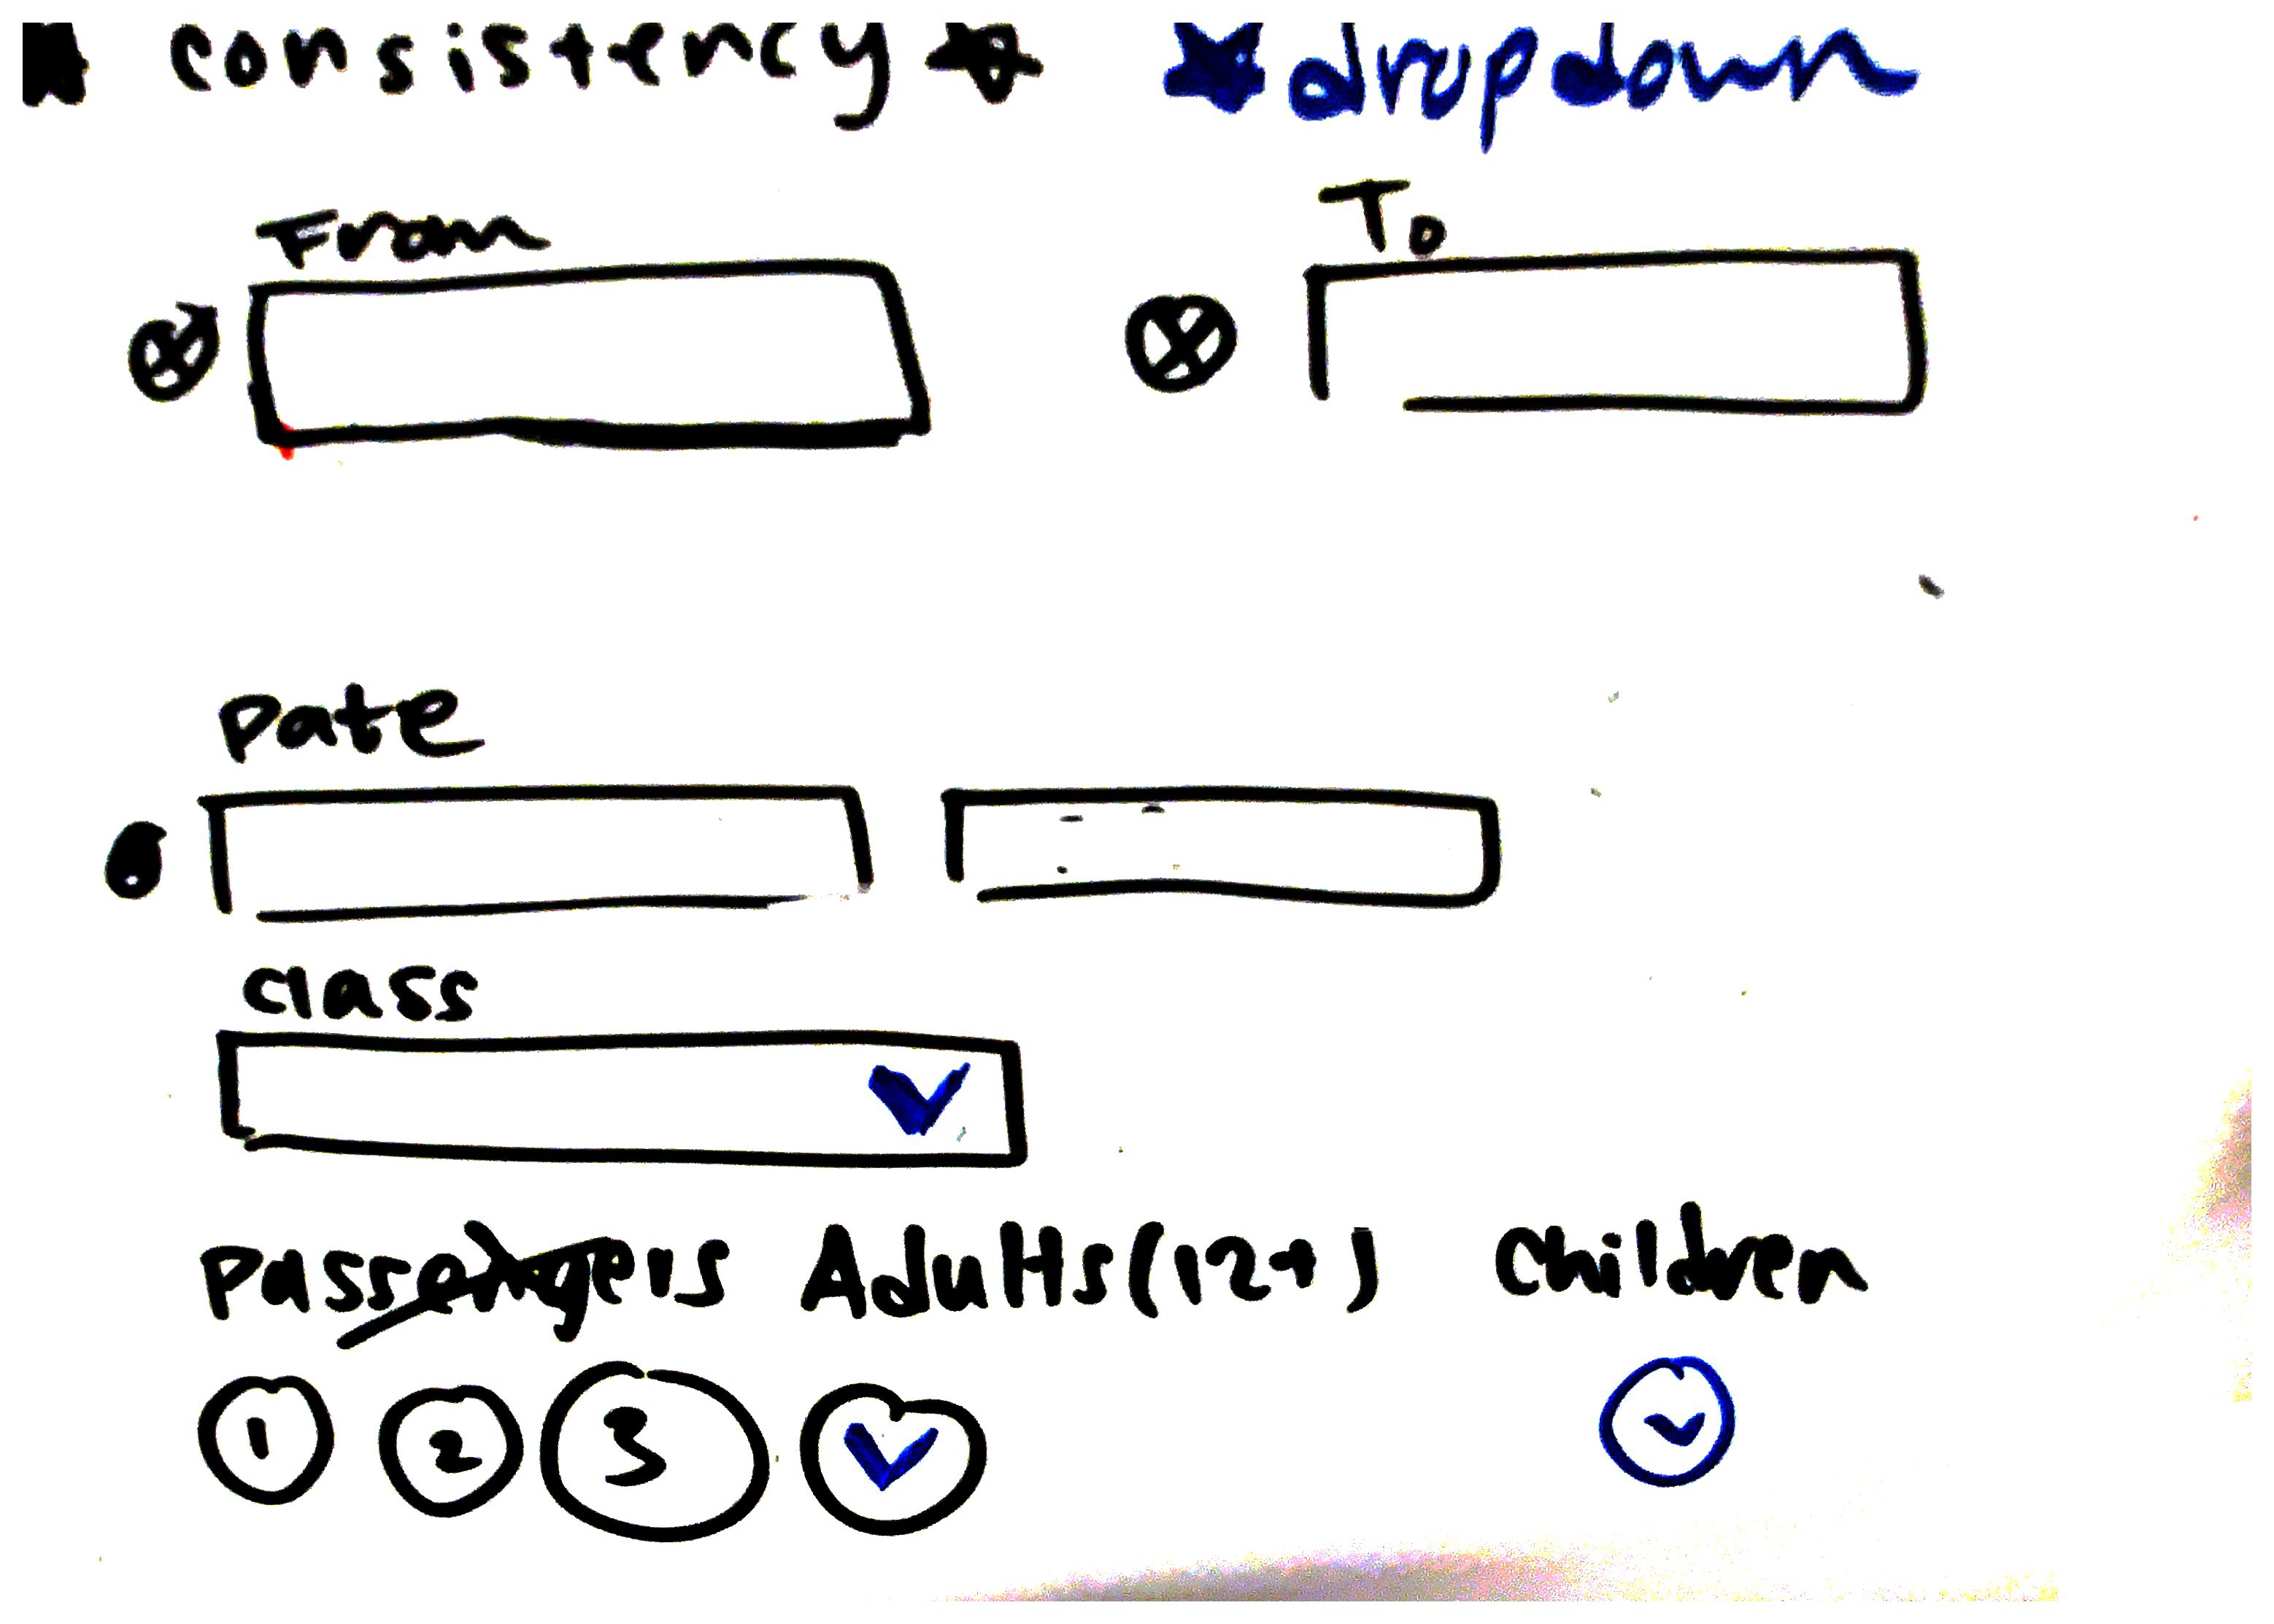 consistency
dropdown
From
To
Date
class
Passengers Adults(12+) Children
1 2 3